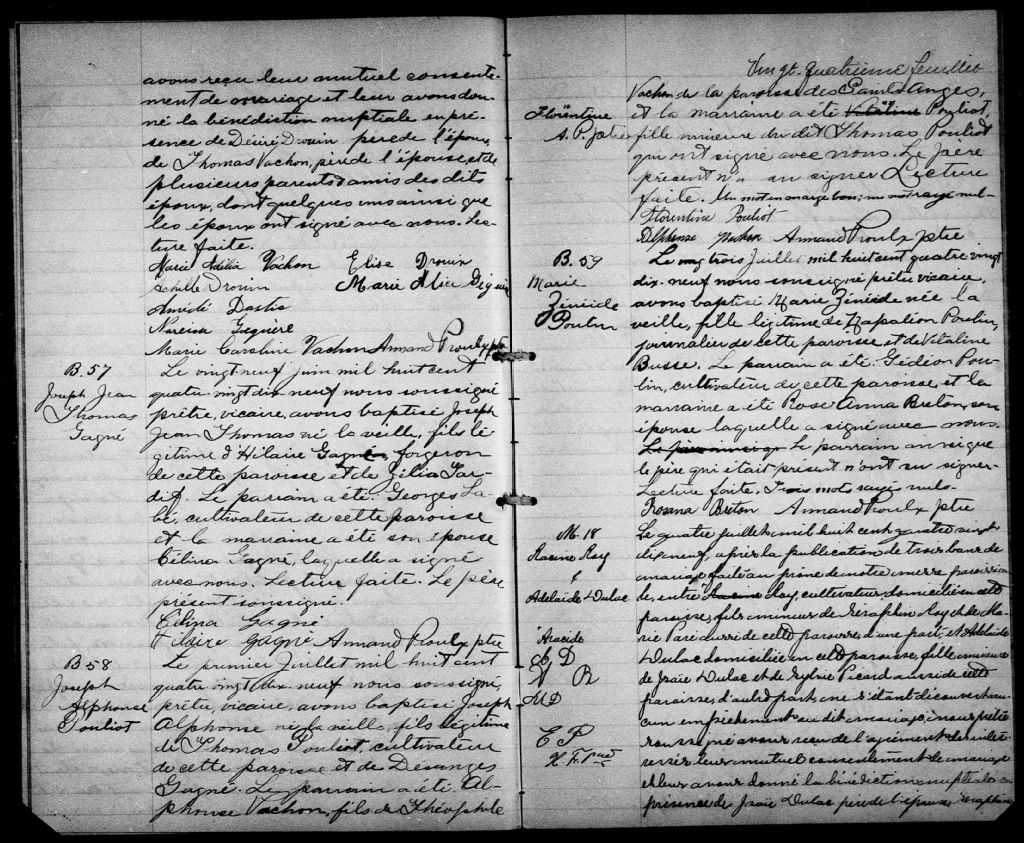 avons reçu leur mutuel consente-
ment de mariage et leur avons don-
né la bénédiction nuptiale en pré-
sence de Désiré Drouin père de l'époux,
de Thomas Vachon, père de l'épouse, et de
plusieurs parents & amis des dits
époux, dont quelques uns ainsi que
les époux ont signé avec nous. Lec-
ture faite.
Marie Adélia Vachon Elise Drouin
Achille Drouin Marie Alice Giguère
Amédé
Narcisse
Marie Caroline Vachon Armand Proulx ptre
B. 57
Joseph Jean
Thomas
Gagné
Le vingt neuf juin mil huit cent
quatre vingt dix neuf nous soussigné
prêtre, vicaire, avons baptisé Joseph
Jean Thomas né la veille, fils lé-
gitime d'Hilaire Gagné, forgeron
de cette paroisse et de Zélia Tar-
dif. Le parrain a été Georges La-
bé, cultivateur de cette paroisse
et la marraine a été son épouse
Célina Gagné, laquelle a signé
avec nous. Lecture faite. Le père
présent soussigné.
Célina Gagné
Hilaire Gagné Armand Proulx ptre
B 58
Joseph
Alphonse
Pouliot
Le premier Juillet mil huit cent
quatre vingt dix neuf nous soussigné,
prêtre, vicaire, avons baptisé Joseph
Alphonse né la veille, fils légitime
de Thomas Pouliot, cultivateur
de cette paroisse et de Désanges
Gagné. Le parrain a été Al-
phonse Vachon, fils de Théophile
Vingt-quatrième feuillet
Vachon de la paroisse des Saints Anges,
Florentine
A. P. ptre
et la marraine a été Pouliot,
fille mineure du dit Thomas Pouliot
qui ont signé avec nous. Le père
présent n'a su signer Lecture
faite. Un mot en marge bon; un mot rayé nul-
Florentine Pouliot
Alphonse Vachon Armand Proulx ptre
B. 59
Marie
Zénéïde
Poulin
Le trois Juillet mil huit cent quatre vingt
dix-neuf nous soussigné prêtre vicaire,
avons baptisé Marie Zénéïde née la
veille, fille légitime de Napoléon Poulin,
journalier de cette paroisse et de Vitaline
Busse. Le parrain a été Gédéon Pou-
lin, cultivateur de cette paroisse, et la
marraine a été Rose Anna Breton, son
épouse laquelle a signé avec nous.
Le parrain ainsi que
le père qui était présent n'ont su signer-
Lecture faite. Trois mots rayés nuls-
Rosana Breton Armand Proulx ptre
M. 18
Roy
&
Adelaide Dulac
A D
R
M D
E P
Le quatre juillet mil huit cent quatre vingt
dix neuf, après la publication de trois bans de
mariage faite au prône de notre messe paroissia-
le, entre Roy, cultivateur domicilié en cette
paroisse, fils mineur de Séraphin Roy et de Ma-
rie Paré aussi de cette paroisse, d'une part; et Adelaide
Dulac domiciliée en cette paroisse, fille mineure
de Isaïe Dulac et de Sylvie Picard aussi de cette
paroisse, d'autre part, ne s'étant découvert au-
cun empêchement au dit mariage; nous prêtre
soussigné avons
leur mutuel consentement de mariage
et leur avons donné la bénédiction nuptiale en
présence de Isaïe Dulac père de l'épouse,